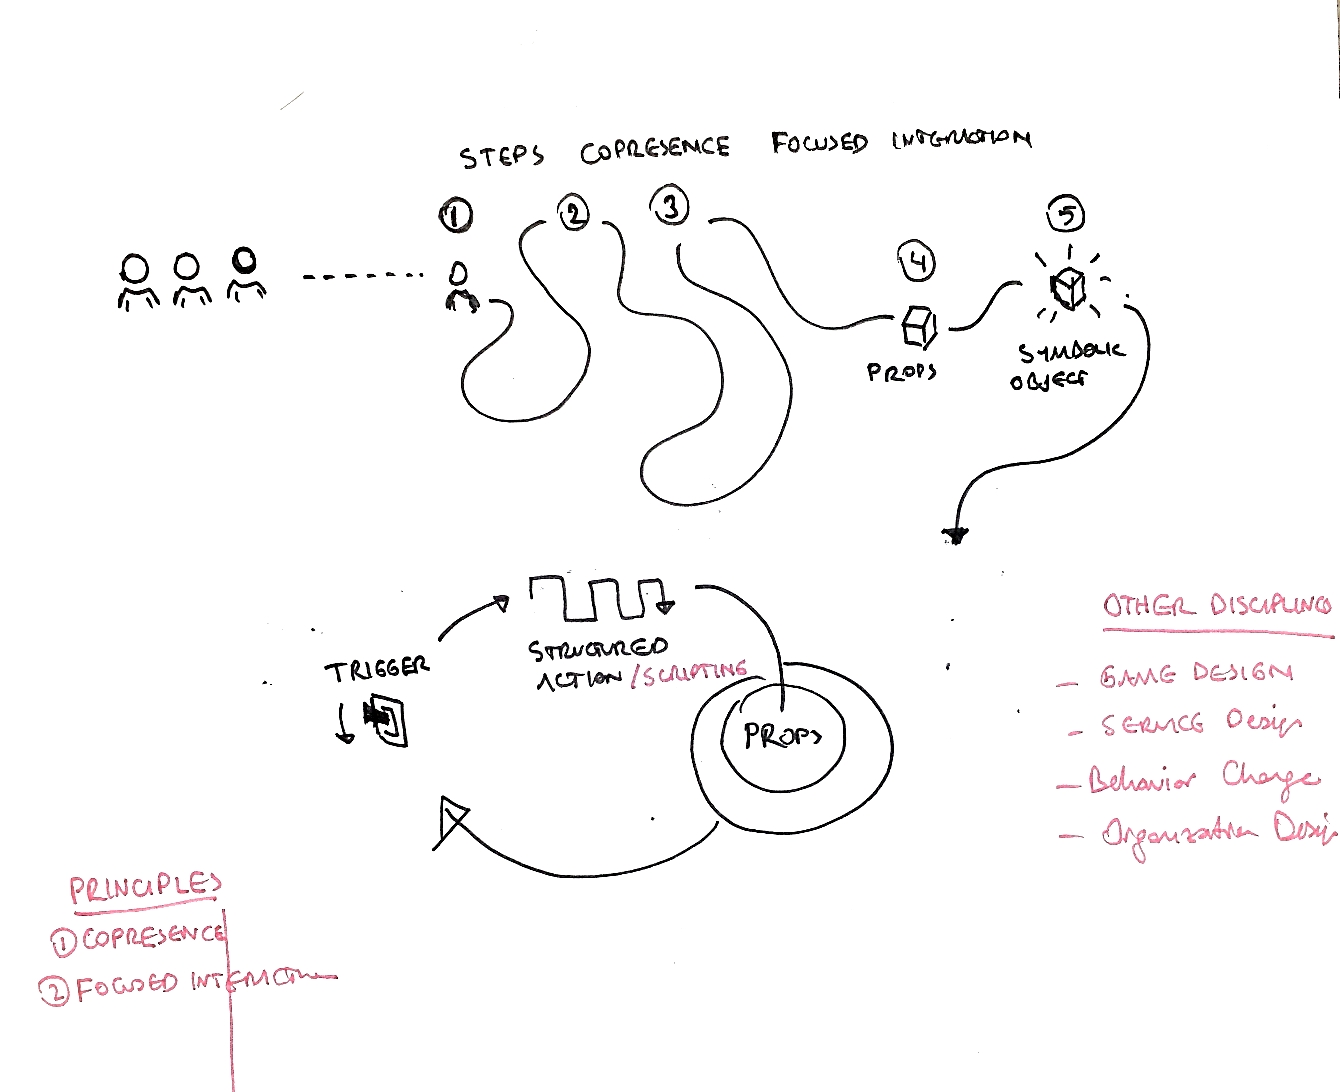 STEPS COPRESENCE FOCUSED INTERACTION
1 2 3
4
5
PROPS
SYMBOLIC
OBJECT
TRIGGER
STRUCTURED
ACTION / SCRIPTING
PROPS
OTHER DISCIPLINES
- GAME DESIGN
- SERVICE Design
- Behavior Change
- Organization Design
PRINCIPLES
1 COPRESENCE
2 FOCUSED INTERACTION